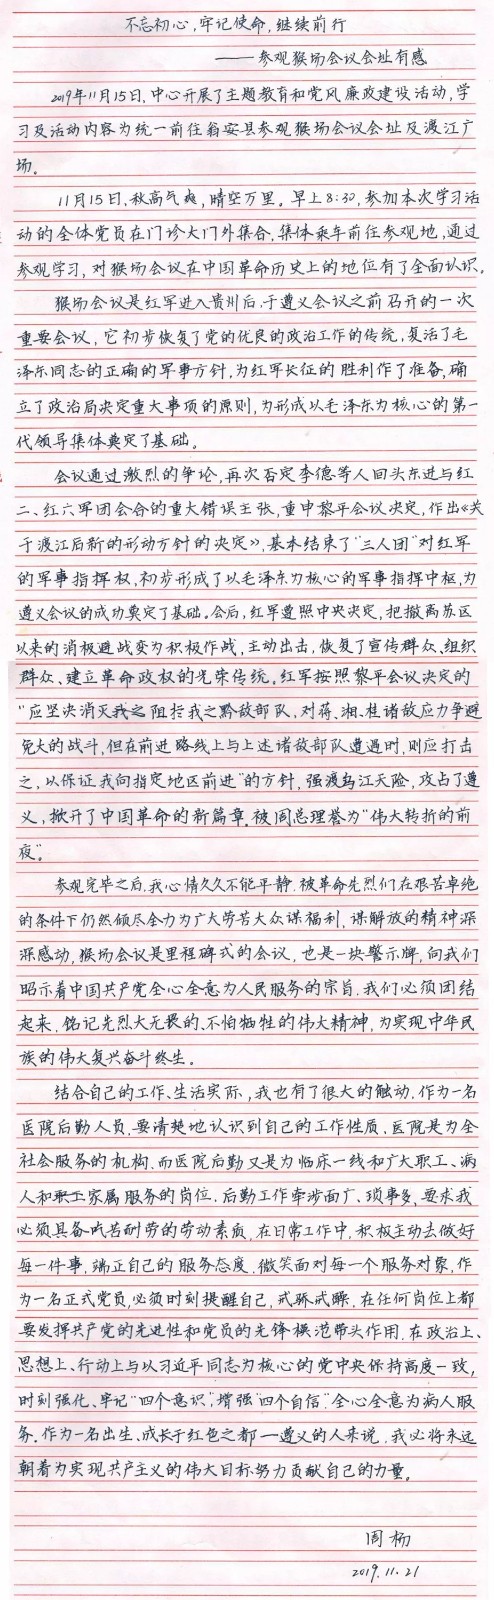 不忘初心,牢记使命,继续前行
——参观猴场会议会址有感
2019年11月15日,中心开展了主题教育和党风廉政建设活动,学
习及活动内容为统一前往瓮安县参观猴场会议会址及渡江广
场。
11月15日,秋高气爽,晴空万里。早上8:30,参加本次学习活
动的全体党员在门诊大门外集合,集体乘车前往参观地,通过
参观学习,对猴场会议在中国革命历史上的地位有了全面认识。
猴场会议是红军进入贵州后,于遵义会议之前召开的一次
重要会议,它初步恢复了党的优良的政治工作的传统,复活了毛
泽东同志的正确的军事方针,为红军长征的胜利作了准备,确
立了政治局决定重大事项的原则,为形成以毛泽东为核心的第一
代领导集体奠定了基础。
会议通过激烈的争论,再次否定李德等人回头东进与红
二、红六军团会合的重大错误主张,重申黎平会议决定,作出《关
于渡江后新的形动方针的决定》,基本结束了"三人团"对红军
的军事指挥权,初步形成了以毛泽东为核心的军事指挥中枢,为
遵义会议的成功奠定了基础。会后,红军遵照中央决定,把撤离苏区
以来的消极避战变为积极作战,主动出击,恢复了宣传群众、组织
群众、建立革命政权的光荣传统。红军按照黎平会议决定的
"应坚决消灭我之阻拦我之黔敌部队,对蒋、湘、桂诸敌应力争避
免大的战斗,但在前进路线上与上述诸敌部队遭遇时,则应打击
之,以保证我向指定地区前进"的方针,强渡乌江天险,攻占了遵
义,掀开了中国革命的新篇章.被周总理誉为"伟大转折的前
夜"。
参观完毕之后,我心情久久不能平静.被革命先烈们在艰苦卓绝
的条件下仍然倾尽全力为广大劳苦大众谋福利,谋解放的精神深
深感动,猴场会议是里程碑式的会议,也是一块警示牌,向我们
昭示着中国共产党全心全意为人民服务的宗旨.我们必须团结
起来,铭记先烈大无畏的、不怕牺牲的伟大精神,为实现中华民
族的伟大复兴奋斗终生。
结合自己的工作、生活实际,我也有了很大的触动.作为一名
医院后勤人员,要清楚地认识到自己的工作性质.医院是为全
社会服务的机构.而医院后勤又是为临床一线和广大职工、病
人和职工家属服务的岗位.后勤工作牵涉面广、琐事多,要求我
必须具备吃苦耐劳的劳动素质,在日常工作中,积极主动去做好
每一件事,端正自己的服务态度.微笑面对每一个服务对象,作
为一名正式党员,必须时刻提醒自己,戒骄戒躁,在任何岗位上都
要发挥共产党的先进性和党员的先锋模范带头作用.在政治上、
思想上、行动上与以习近平同志为核心的党中央保持高度一致,
时刻强化、牢记"四个意识",增强"四个自信".全心全意为病人服
务.作为一名出生、成长于红色之都—遵义的人来说,我必将永远
朝着为实现共产主义的伟大目标努力贡献自己的力量。
周杨
2019.11.21